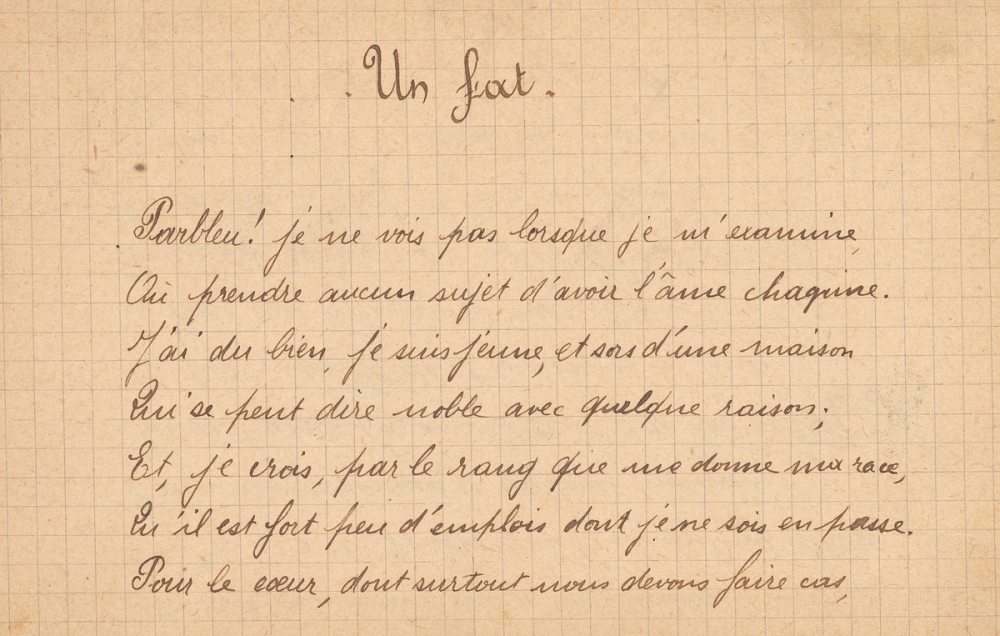 Un fat.
Parbleu! je ne vois pas lorsque je m'examine,
Où prendre aucun sujet d'avoir l'âme chagrine.
J'ai du bien, je suis jeune, et sors d'une maison
Qui se peut dire noble avec quelque raison;
Et, je crois, par le rang que me donne ma race,
Qu'il est fort peu d'emplois dont je ne sois en passe.
Pour le cœur, dont surtout nous devons faire cas,